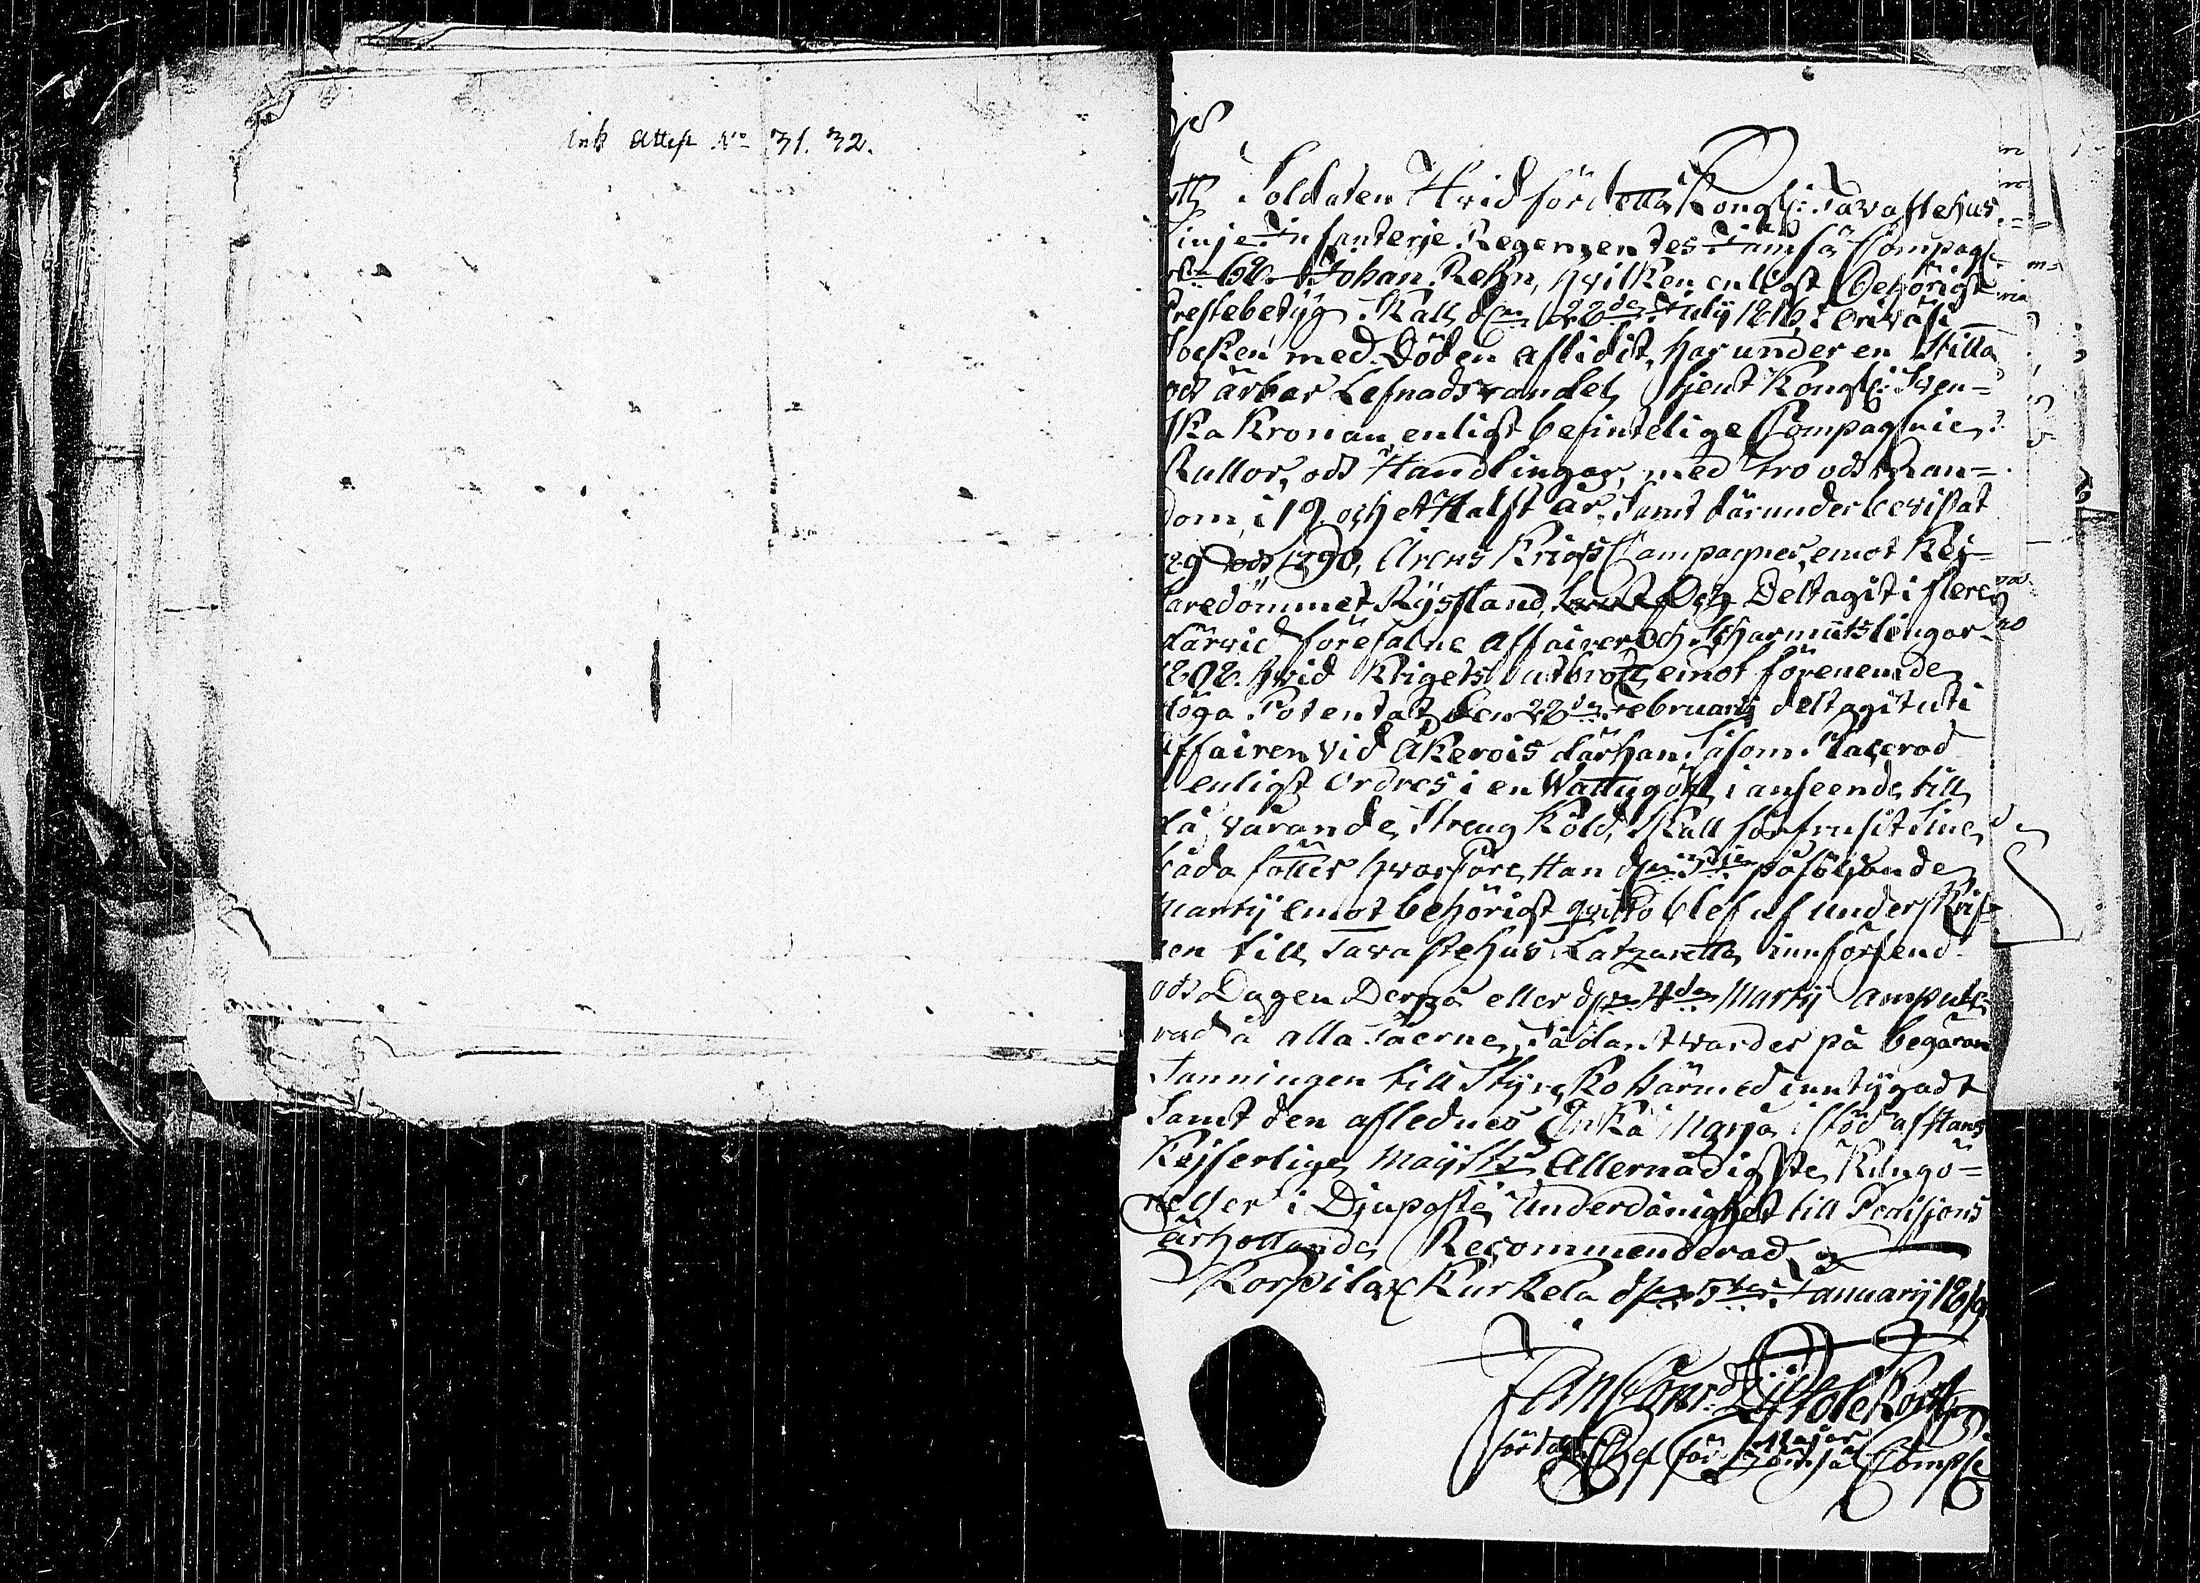 Ink Attest No 31. 32.
Att Soldaten Hvid för detta Kongl: Tavastehus
Linje Infanterje Regementes Jämsä Compagn:
No 62. Johan Rehn, hvilken enligt Behörigt
Prestebetyg Skall den 28de July 1816 i Orivesi
Socken med Döden aflidit, har under en Stilla
och ärbar Lefnadsvandel, tjent Kongl: Sven-
ska Kronan, enligt befintelige Compagnie
Rullor, och Handlingar, med Tro och Man-
dom, i 19 och et Halft år, Samt därunder bevistat
och 1790, Årens Krigs Campagner, emot Kej-
saredömmet Ryssland, Och Deltagit i flere
därvid förefalne affairer Och Scharmutslingar
1808. hvid Krigets utbrott, emot förenemde
Höga Potentat, den 28de Februarij deltagit uti
Affairen vid Åkerois därhan Såsom Placerad
enligt Ordres i en i anseende till
då varande Streng Köld, Skall förfrusit Sine
båda fötter hvarföre Han den 3die påföljande
Martij emot behörigt qvitto blef af underskrif-
ven till Tavastehus Latzarett innförsend
och Dagen Derpå eller den 4de Martij ampute-
rad å alla Tåerne, Sådant varder på begäran
Sanningen till Styrcko härmed inntygadt
Samt den aflednes Enka Marja i stöd af Hans
Kejserlige Mayjts Allernådigste Kungö-
relser i Djupaste Underdånighet till Pensions
ärhollande Recommenderad
Korpilax Kurkela den 5te Januarij 1819
Jan Conr: Pistolekors
Major
för Chef för Jämsä Comp: